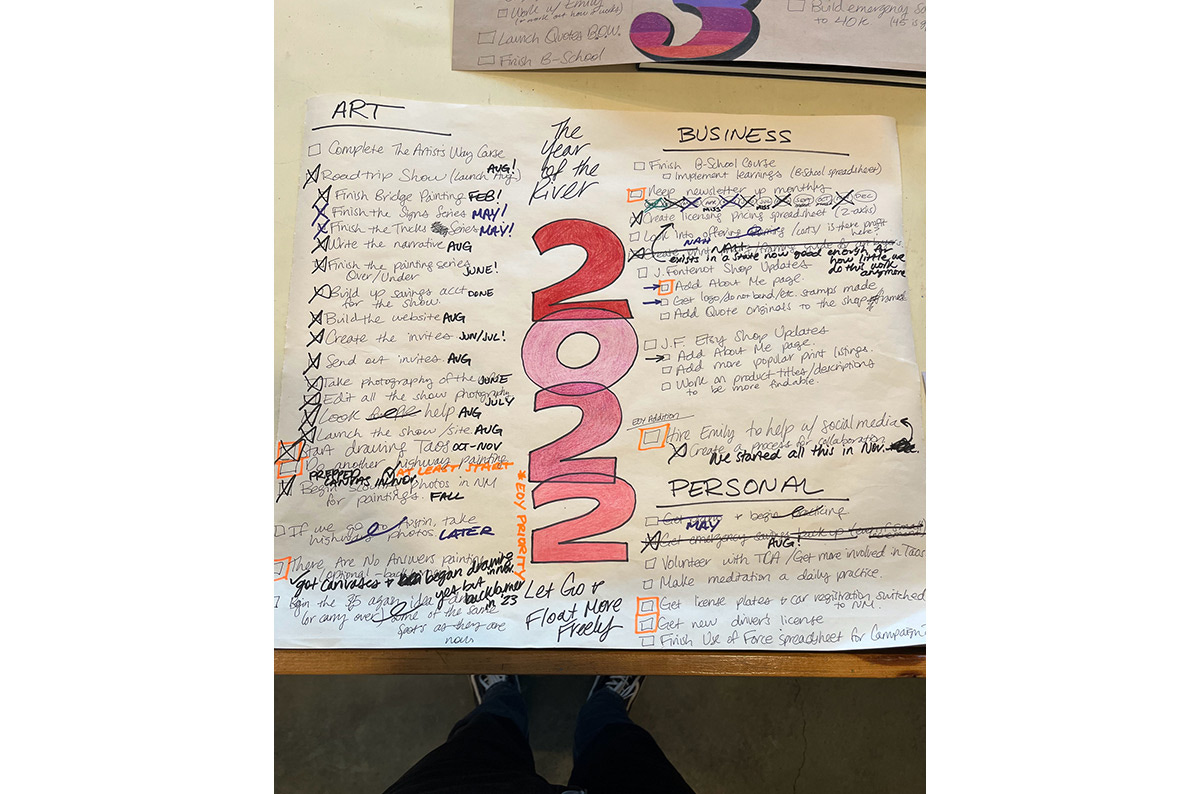 Work w/ Emily
Launch Quotes B.O.W.
Finish B-School
3
Build emergency
to 40k
ART
Complete The Artist's Way Carse
Roadtrip Show (Launch Aug) AUG!
Finish Bridge Painting FEB!
Finish the Signs Series MAY!
Finish the Tricks Series MAY!
Write the narrative AUG
Finish the painting series JUNE!
Over/Under
Build up savings acct DONE
for the show.
Build the website AUG
Create the invites JUN/JUL!
Send out invites. AUG
Take photography of the JUNE
Edit all the show photography JULY
Look help AUG
Launch the show/site. AUG
Start drawing Taos OCT-NOV
Do another highway painting
PREPPED CANVAS IN NOV ✓ AT LEAST START
Begin photos in NM
for paintings. FALL
If we go to Austin, take
highway photos LATER
There Are No Answers painting
(optional
✓got canvases + began drawing
in nov.
yes but
backburner
in '23
Begin the 35 again idea
(or carry over some of the same
spots as they are
now
The
Year
of the
River
2022
*EOY PRIORITY
Let Go +
Float More
Freely
BUSINESS
Finish B-School Course
Implement learnings (B-School spreadsheet)
Keep newsletter up monthly
MISS MISS SEPT OCT DEC
Create licensing pricing spreadsheet (2-axis)
Look into offering is there profit
here?
NAH
NAH
exists in a state now good enough for
how little we
do this work
anymore
J. Fontenot Shop Updates
Add About Me page.
Get logo/do not bend/etc. stamps made
Add Quote originals to the shop framed
J.F. Etsy Shop Updates
Add About Me page.
Add more popular print listings.
Work on product titles/descriptions
to be more findable.
EOY Addition
Hire Emily to help w/ social media
Create a process for collaboration
We started all this in Nov.
PERSONAL
MAY + begin
Get emergency savings back up
AUG!
Volunteer with TCA/Get more involved in Taos
Make meditation a daily practice.
Get license plates + car registration switched
to NM.
Get new driver's license
Finish Use of Force spreadsheet for Campaign